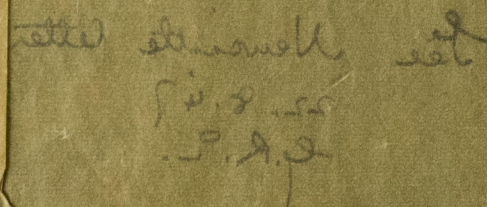 See Newcastle letter
22.8.47